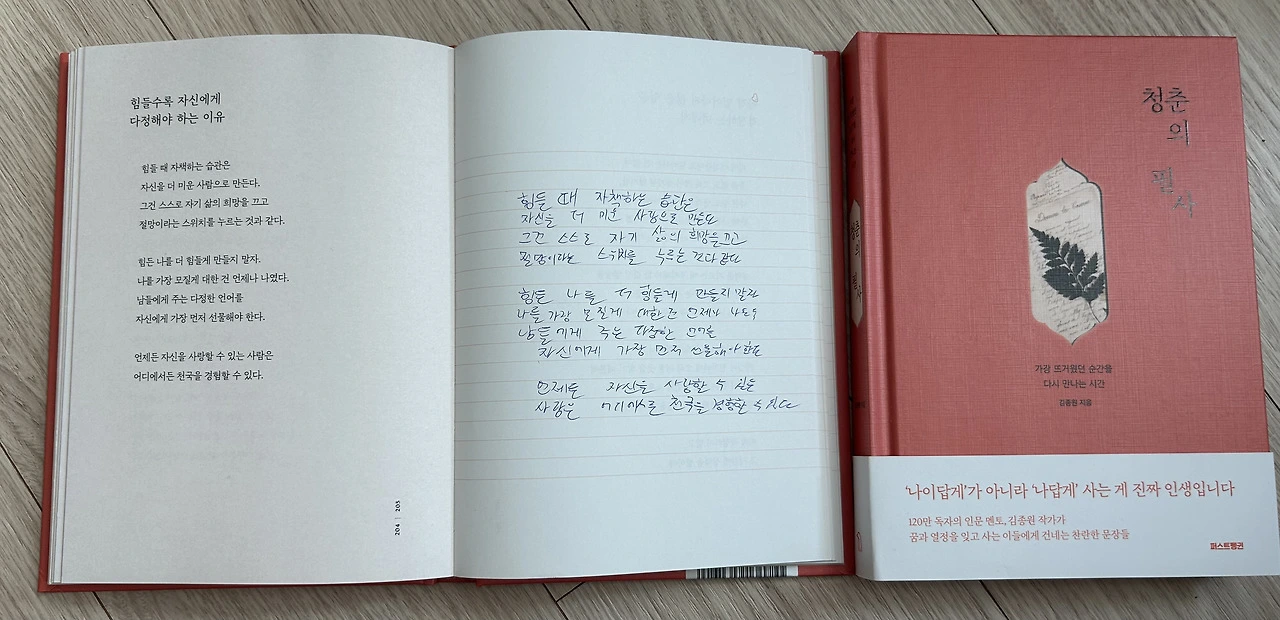 힘들수록 자신에게
다정해야 하는 이유
힘들 때 자책하는 습관은
자신을 더 미운 사람으로 만든다.
그건 스스로 자기 삶의 희망을 끄고
절망이라는 스위치를 누르는 것과 같다.
힘든 나를 더 힘들게 만들지 말자.
나를 가장 모질게 대한 건 언제나 나였다.
남들에게 주는 다정한 언어를
자신에게 가장 먼저 선물해야 한다.
언제든 자신을 사랑할 수 있는 사람은
어디에서든 천국을 경험할 수 있다.
204 | 205
힘들 때 자책하는 습관은
자신을 더 미운 사람으로 만든다
그건 스스로 자기 삶의 희망을 끄고
절망이라는 스위치를 누르는 것과 같다
힘든 나를 더 힘들게 만들지 말라
나를 가장 모질게 대한 건 언제나
남들에게 주는 다정한 언어를
자신에게 가장 먼저 선물해야 한다
언제든 자신을 사랑할 수 있는
사람은 어디에서든 천국을 경험할 수 있다
청춘
의
필
사
가장 뜨거웠던 순간을
다시 만나는 시간
김종원 지음
'나이답게'가 아니라 '나답게' 사는 게 진짜 인생입니다
120만 독자의 인문 멘토, 김종원 작가가
꿈과 열정을 잊고 사는 이들에게 건네는 찬란한 문장들
퍼스트펭귄
청춘의 필사